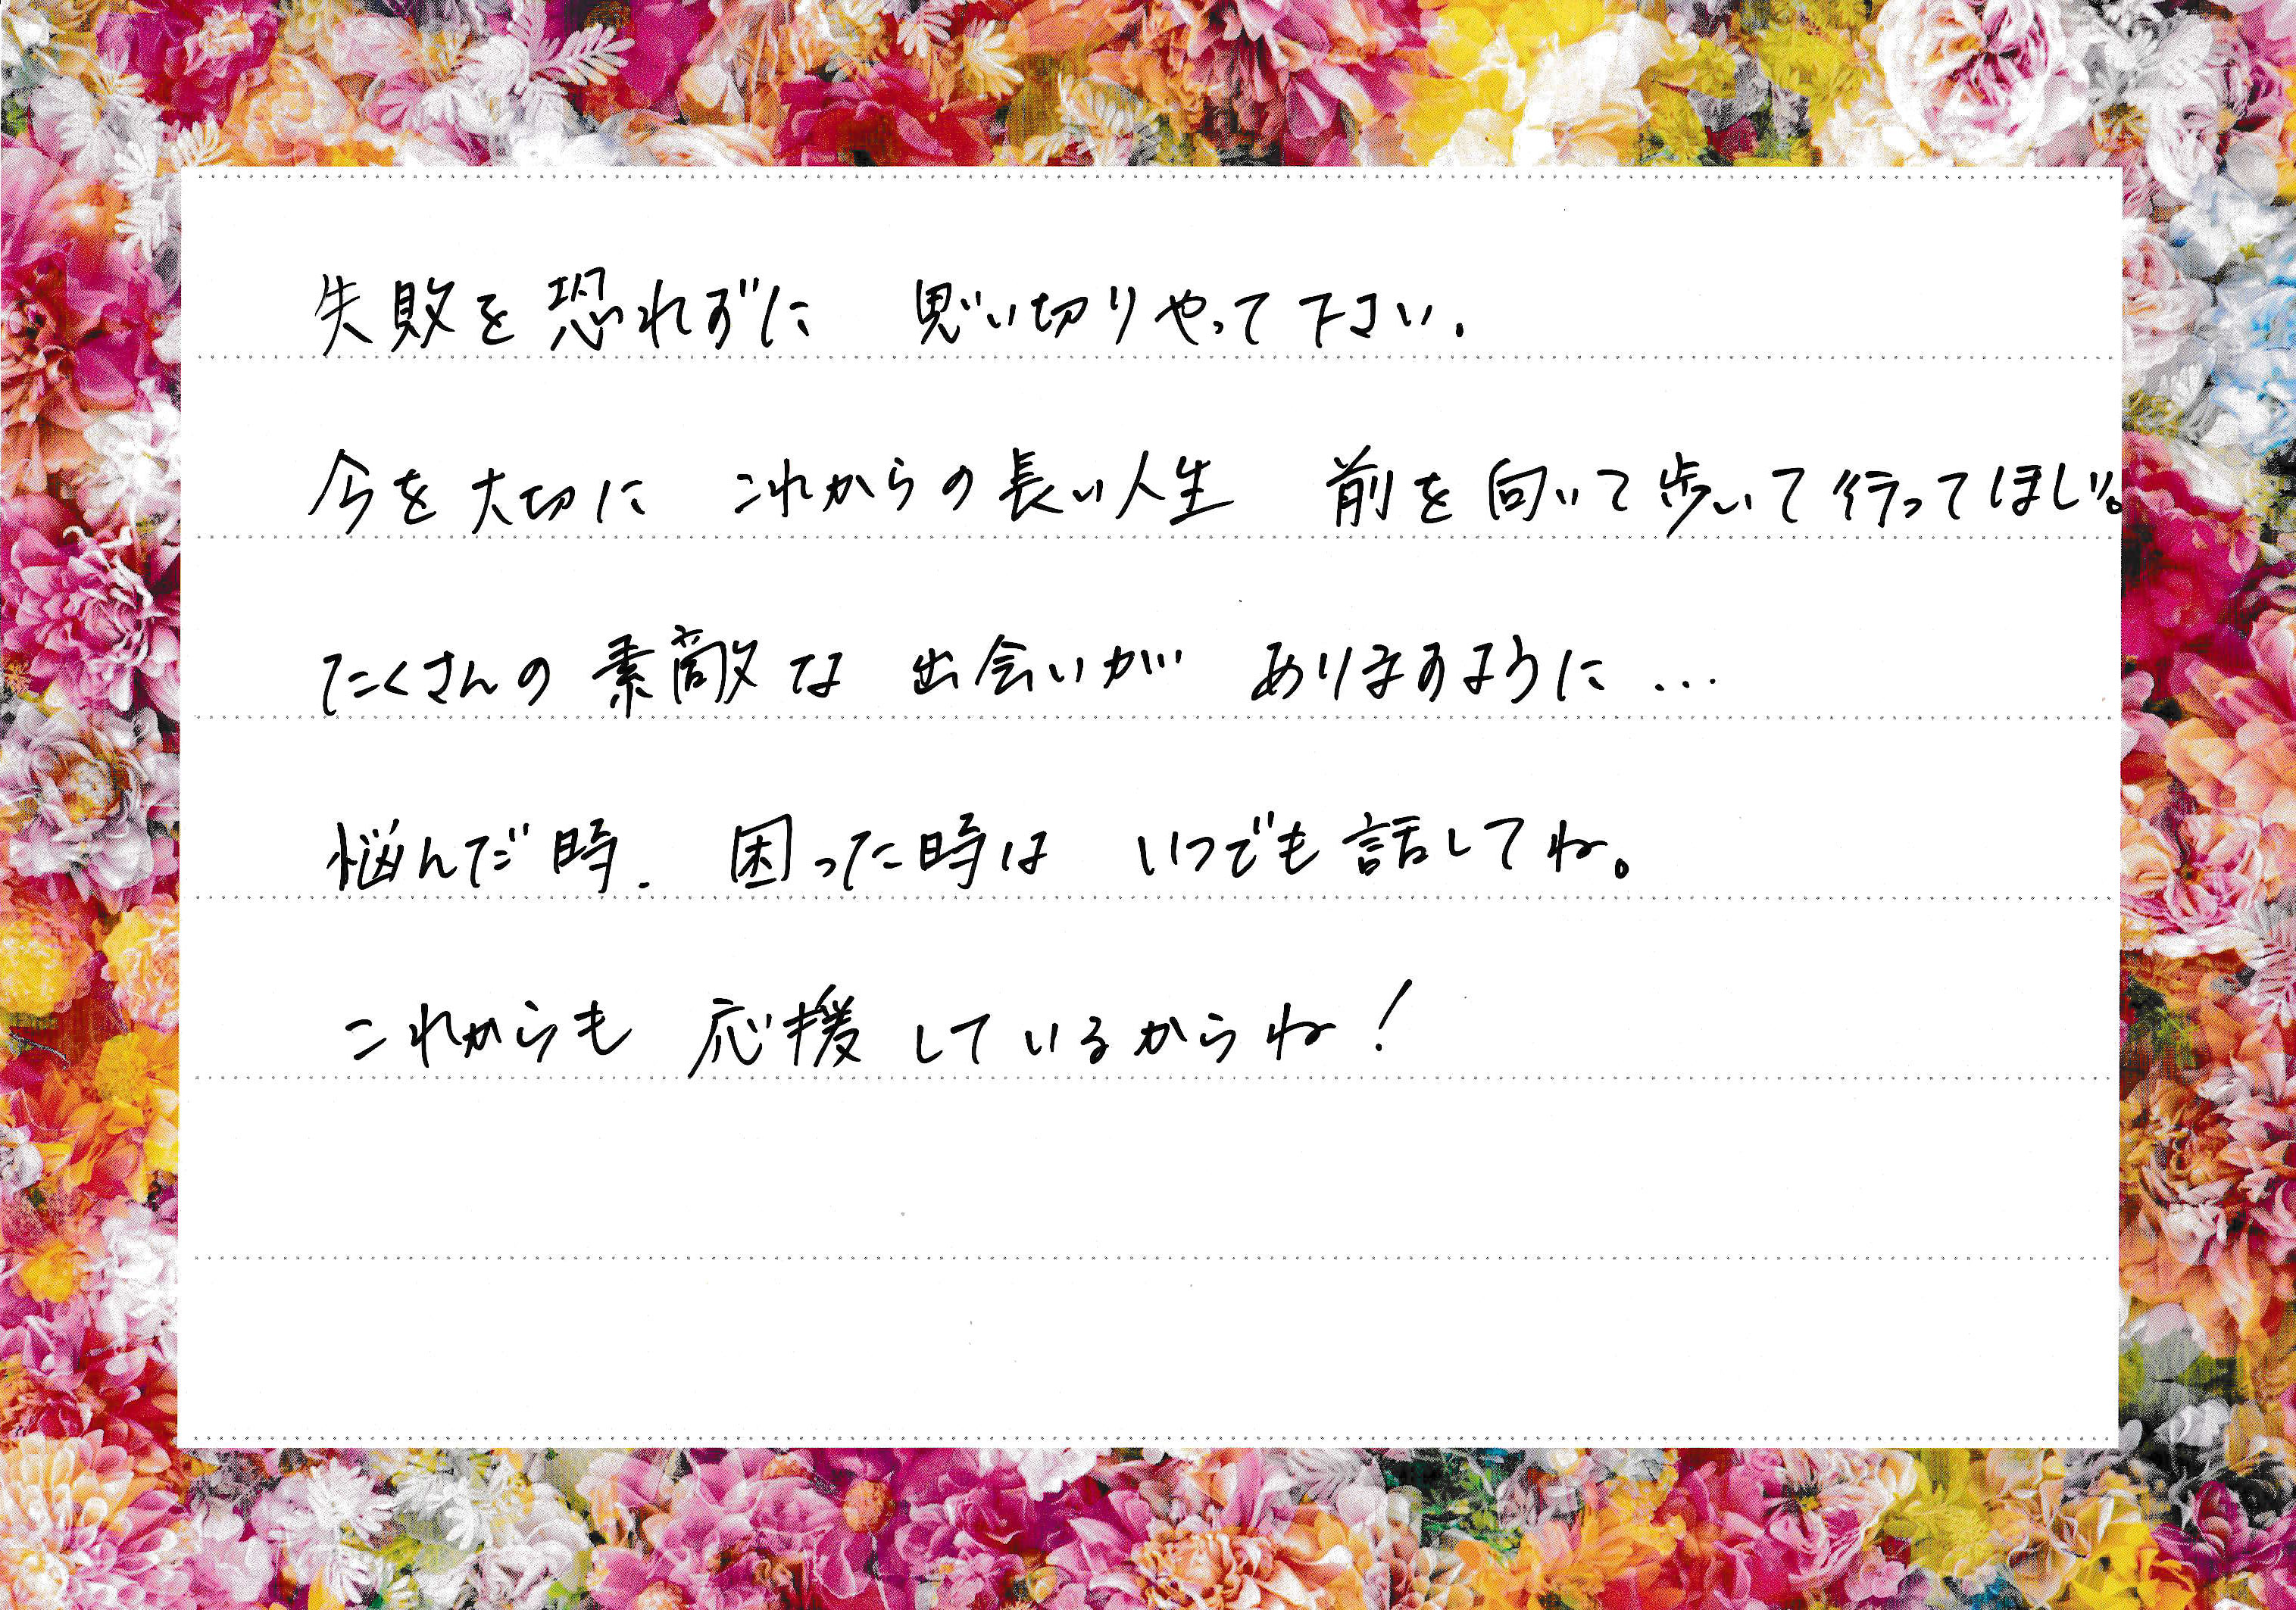 失敗を恐れずに 思い切りやって下さい.
今を大切に これからの長い人生 前を向いて歩いて行ってほしい。
たくさんの素敵な 出会いが ありますように...
悩んだ時. 困った時は いつでも話してね。
これからも 応援しているからね!